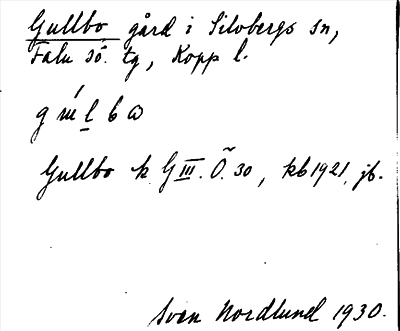 Gullbo gård i Silvbergs sn,
Falu sö. tg, Kopp l.
Gullbo k. G III. Ö. 30, kb 1921, jb.
Sven Nordlund 1930.